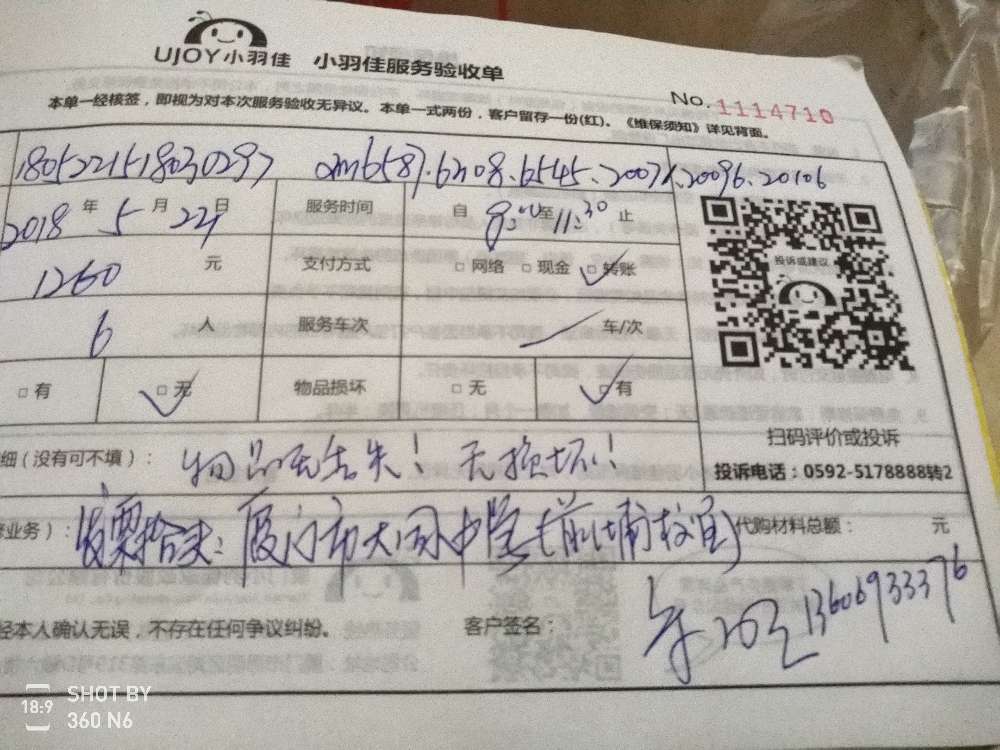 UJOY小羽佳 小羽佳服务验收单
No. 1114710
本单一经核签，即视为对本次服务验收无异议。本单一式两份，客户留存一份(红)。《维保须知》详见背面。
6208.6545.2007.20096.20106
2018 年 5 月 22 日 服务时间 自 8:00 至 11:30 止
1260 元 支付方式 □网络 □现金 ☑转账
投诉或建议
6 人 服务车次 车/次
□有 ☑无 物品损坏 □无 ☑有
扫码评价或投诉
细(没有可不填)： 物品无丢失！无损坏！
投诉电话：0592-5178888转2
业务)： 发票抬头：厦门市大同中学(前埔校区) 代购材料总额： 元
经本人确认无误，不存在任何争议纠纷。 客户签名： 13606933376
18:9 SHOT BY
360 N6